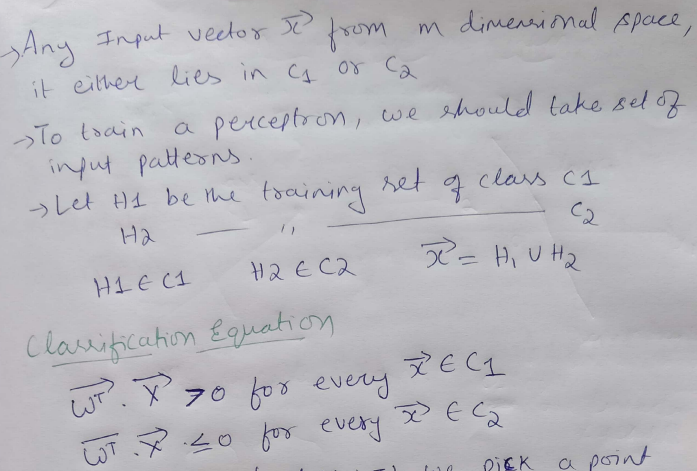 →Any Input vector x⃗ from m dimensional space,
it either lies in C1 or C2
→To train a perceptron, we should take set of
input patterns.
→Let H1 be the training set of class C1
H2 —— ,, —————— C2
H1 ∈ C1 H2 ∈ C2 x⃗ = H₁ ∪ H₂
Classification Equation
w⃗ᵀ. X⃗ >0 for every x⃗ ∈ C1
w⃗ᵀ. X⃗ ≤0 for every x⃗ ∈ C2
pick a point